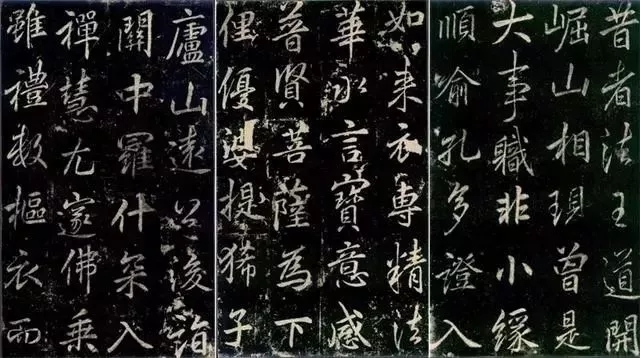 昔者法王道開
崛山相現曾是
大事職非小緣
順俞孔多證入
如来衣專精法
華永言寶意感
普賢菩薩為下
俚優婆提狶子
廬山遠公後詣
關中羅什罙入
禪慧尤邃佛乘
雖禮數樞衣而